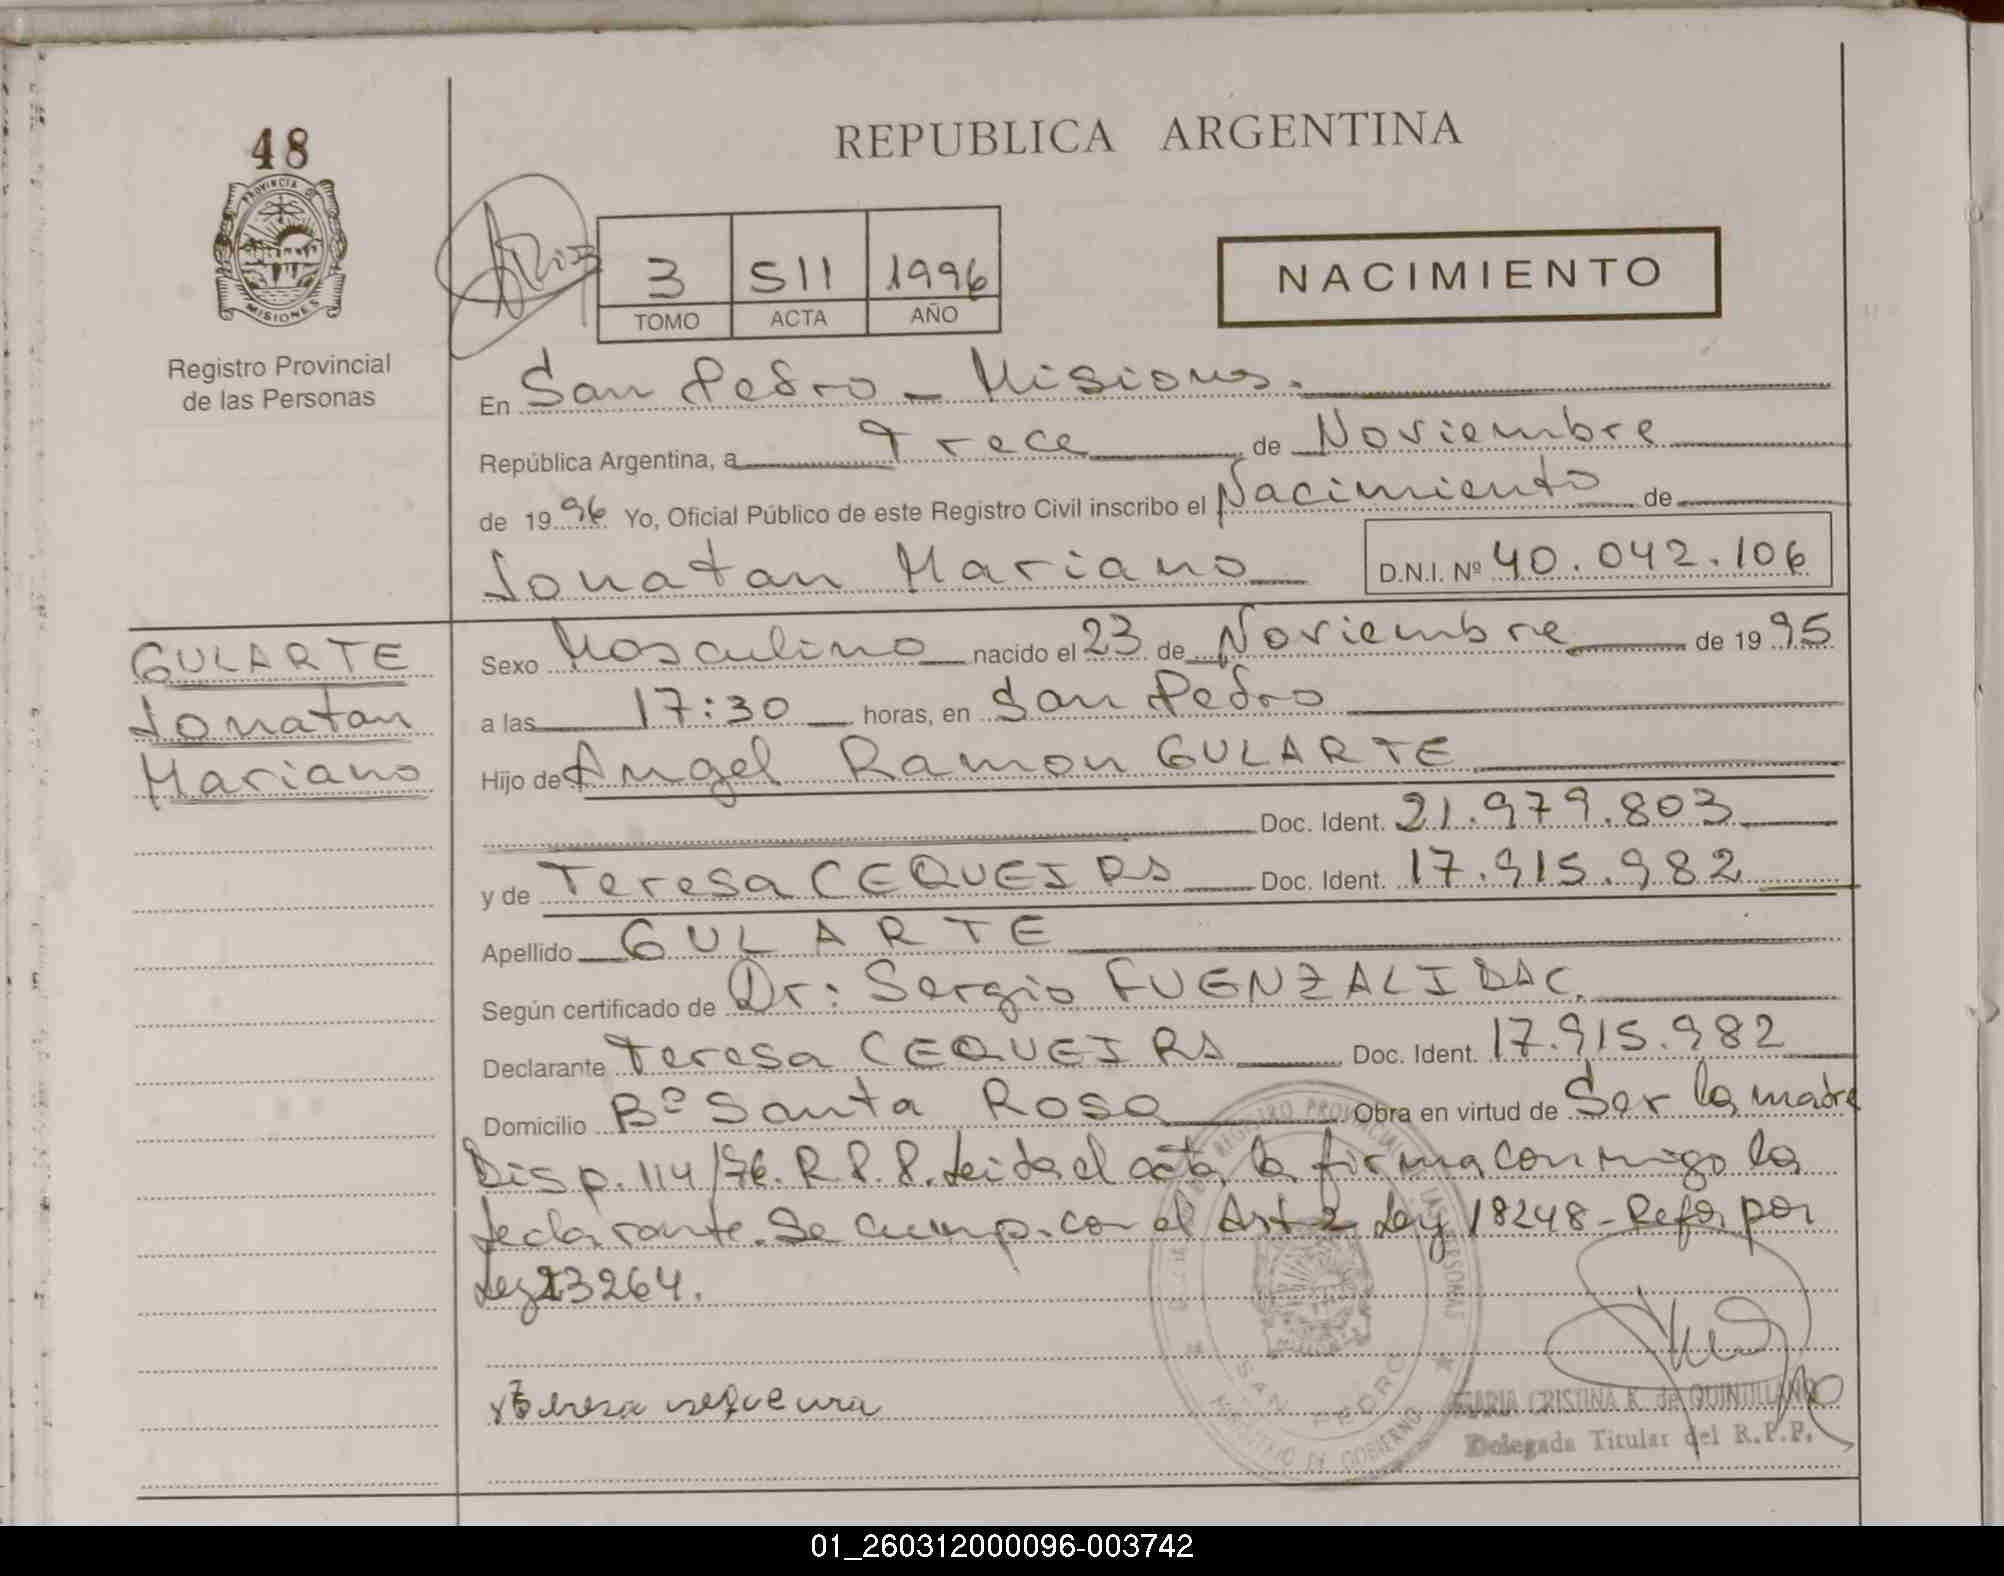 48
PROVINCIA DE
MISIONES
Registro Provincial
de las Personas
REPUBLICA ARGENTINA
3 511 1996
TOMO ACTA AÑO
NACIMIENTO
En San Pedro - Misiones.
República Argentina, a Trece de Noviembre
de 1996 Yo, Oficial Público de este Registro Civil inscribo el Nacimiento de
Jonatan Mariano D.N.I. Nº 40.042.106
GULARTE
Jonatan
Mariano
Sexo Masculino nacido el 23 de Noviembre de 1995
a las 17:30 horas, en San Pedro
Hijo de Angel Ramon GULARTE
Doc. Ident. 21.979.803
y de Teresa CEQUEIRA Doc. Ident. 17.915.982
Apellido GULARTE
Según certificado de Dr: Sergio FUENZALIDA C.
Declarante Teresa CEQUEIRA Doc. Ident. 17.915.982
Domicilio Bº Santa Rosa Obra en virtud de Ser la madre
Disp. 114/96. R.P.P. Leida el acta, la firma conmigo la
declarante. Se cump. con el Art 2 Ley 18248 - Refor por
Ley 23264.
Teresa
MARIA CRISTINA K. de QUINTILLANO
Delegada Titular del R.P.P.
REGISTRO PROVINCIAL DE LAS PERSONAS
SAN PEDRO
MINISTERIO DE GOBIERNO
01_260312000096-003742